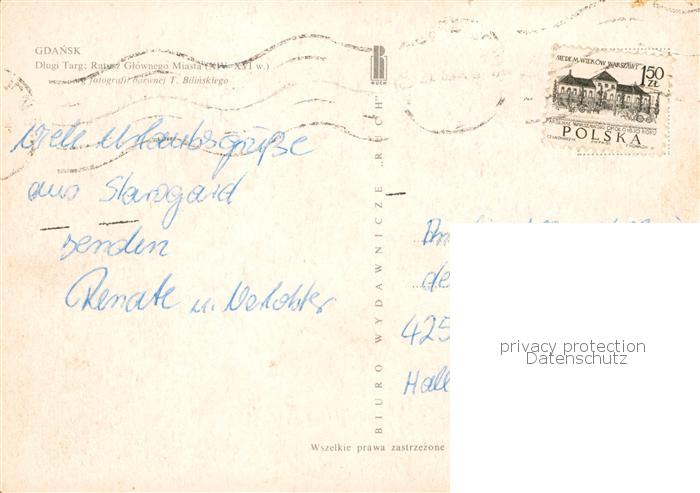 GDAŃSK
Długi Targ; Ratusz Głównego Miasta (XIV–XVI w.)
fotografii barwnej T. Bilińskiego
RUCH
SIEDEM WIEKÓW WARSZAWY
1,50
ZŁ
POLSKA
viele Urlaubsgrüße
aus Starogard
senden
Renate u.
BIURO WYDAWNICZE „RUCH”
425
Hall
privacy protection
Datenschutz
Wszelkie prawa zastrzeżone